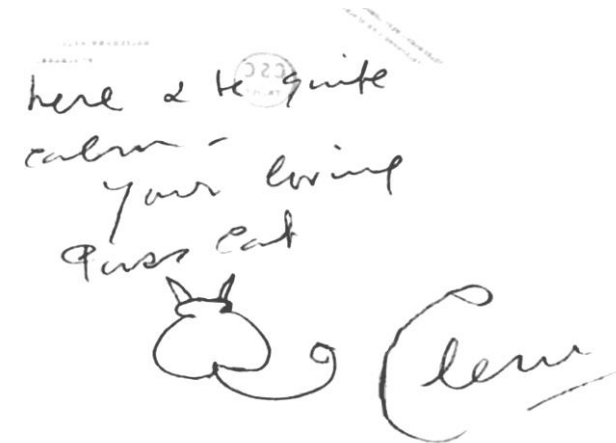 here & be quite
calm -
Your loving
Puss Cat
Clem